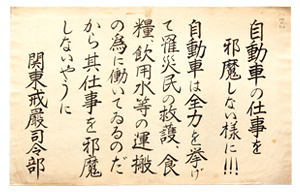 自動車の仕事を
邪魔しない様に!!!
自動車は全力を挙げ
て罹災民の救護、食
糧飲用水等の運搬
の為に働いてゐるのだ
から其仕事を邪魔
しないやうに
関東戒厳司令部